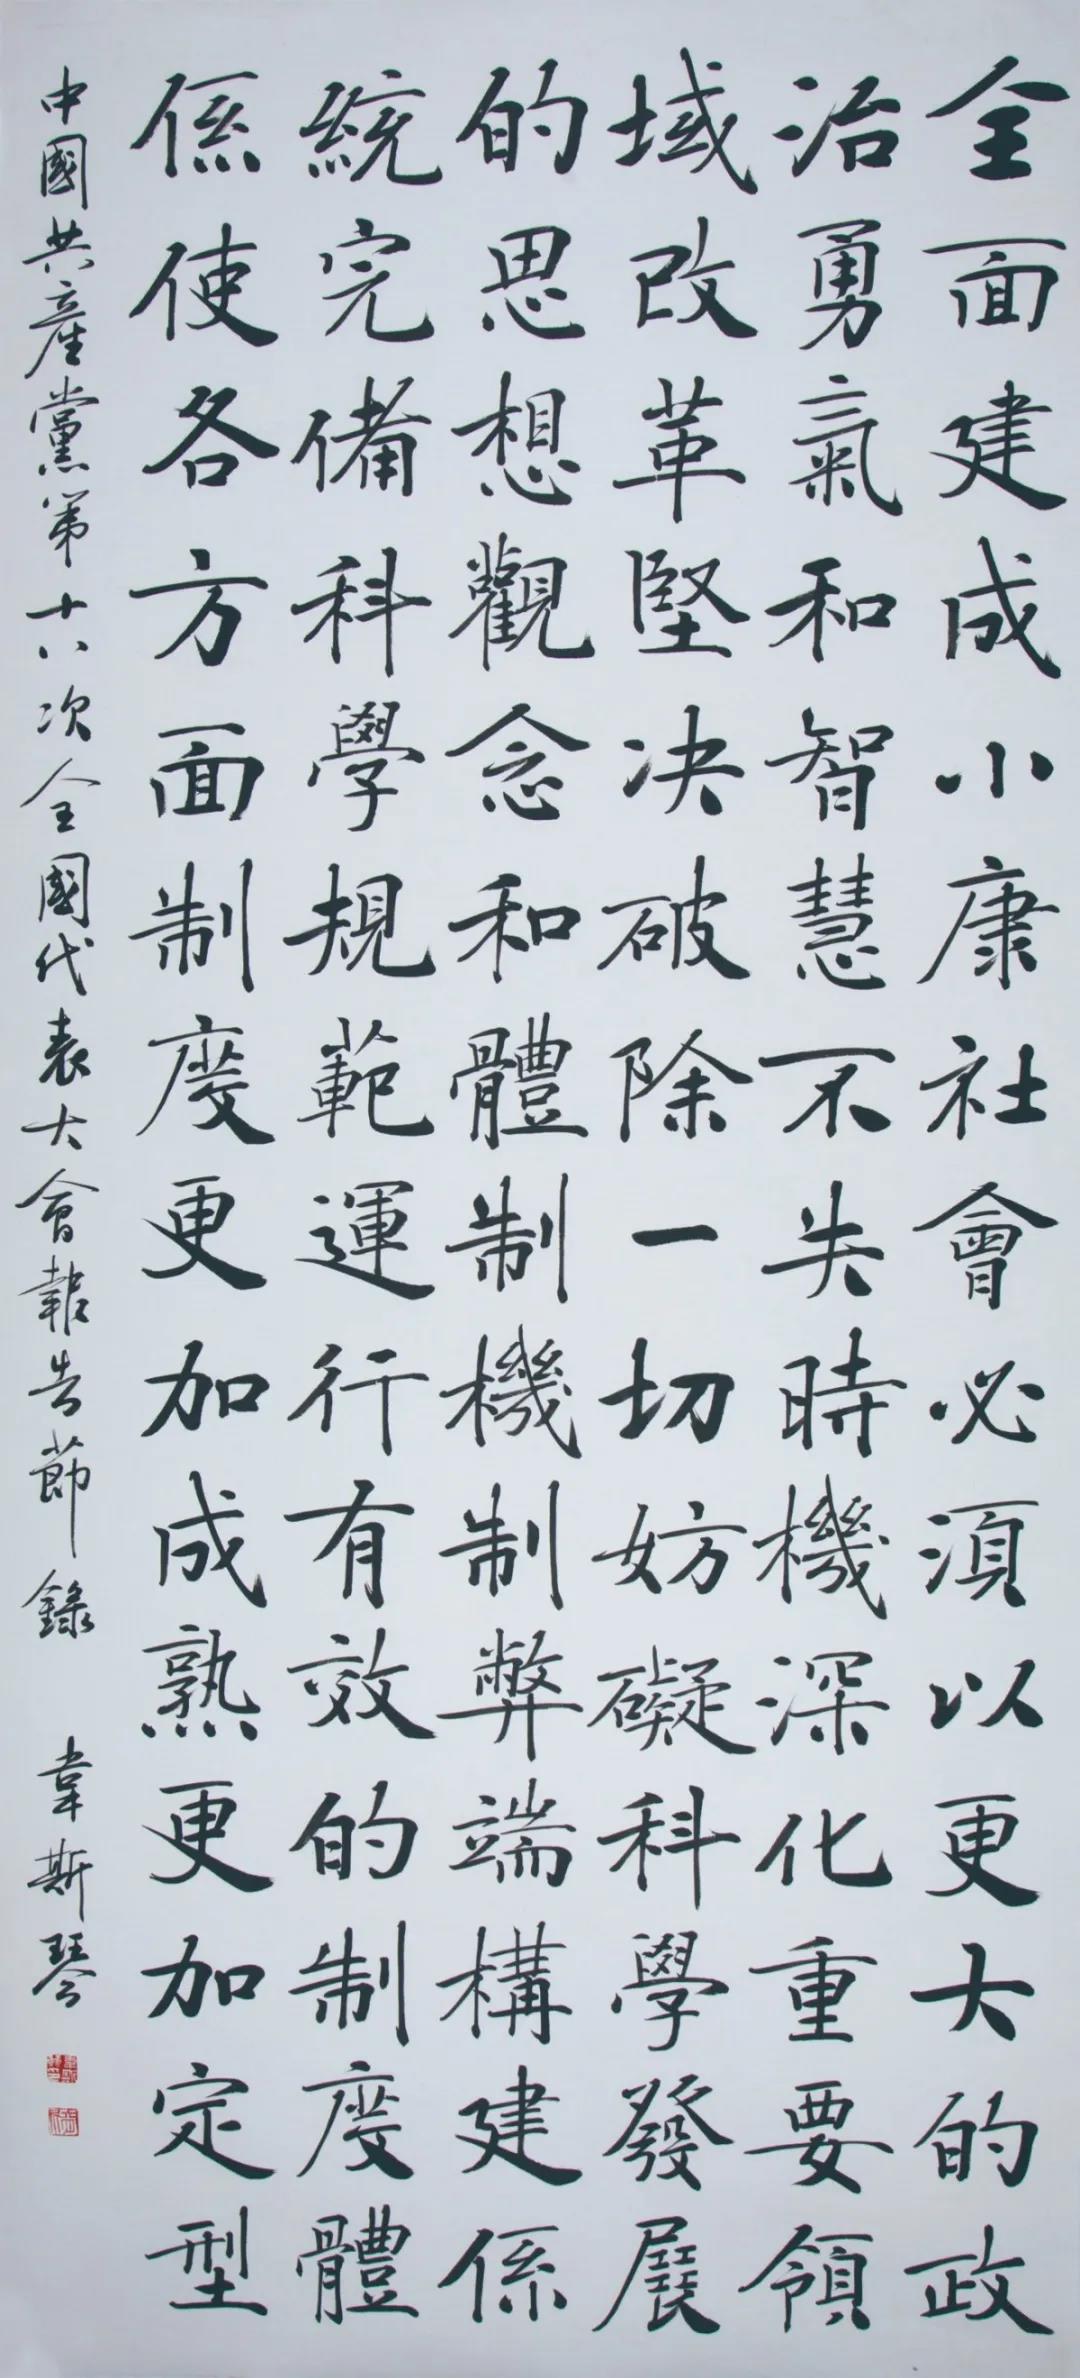 全面建成小康社會必須以更大的政
治勇氣和智慧不失時機深化重要領
域改革堅决破除一切妨礙科學發展
的思想觀念和體制機制弊端構建係
統完備科學規範運行有效的制度體
係使各方面制度更加成熟更加定型
中國共產黨第十八次全國代表大會報告節錄 韋斯琴